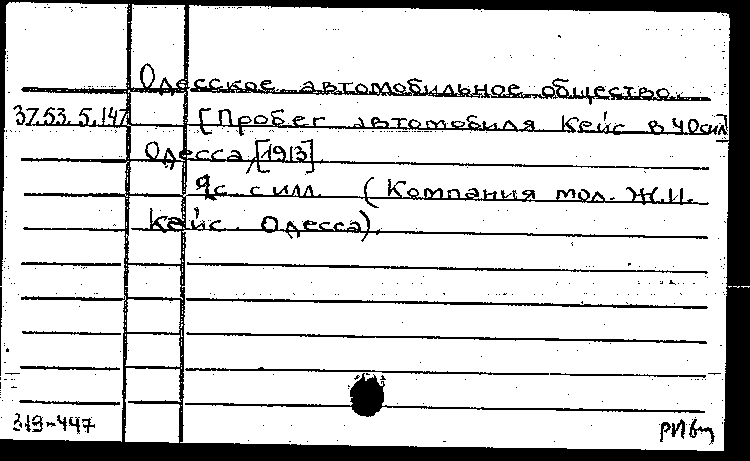 Одесское автомобильное общество.
37.53.5.147 [Пробег автомобиля Кейс в 40 сил]
Одесса, [1913].
9с. с илл. (Компания мол. Ж.И.
Кейс. Одесса).
319-447